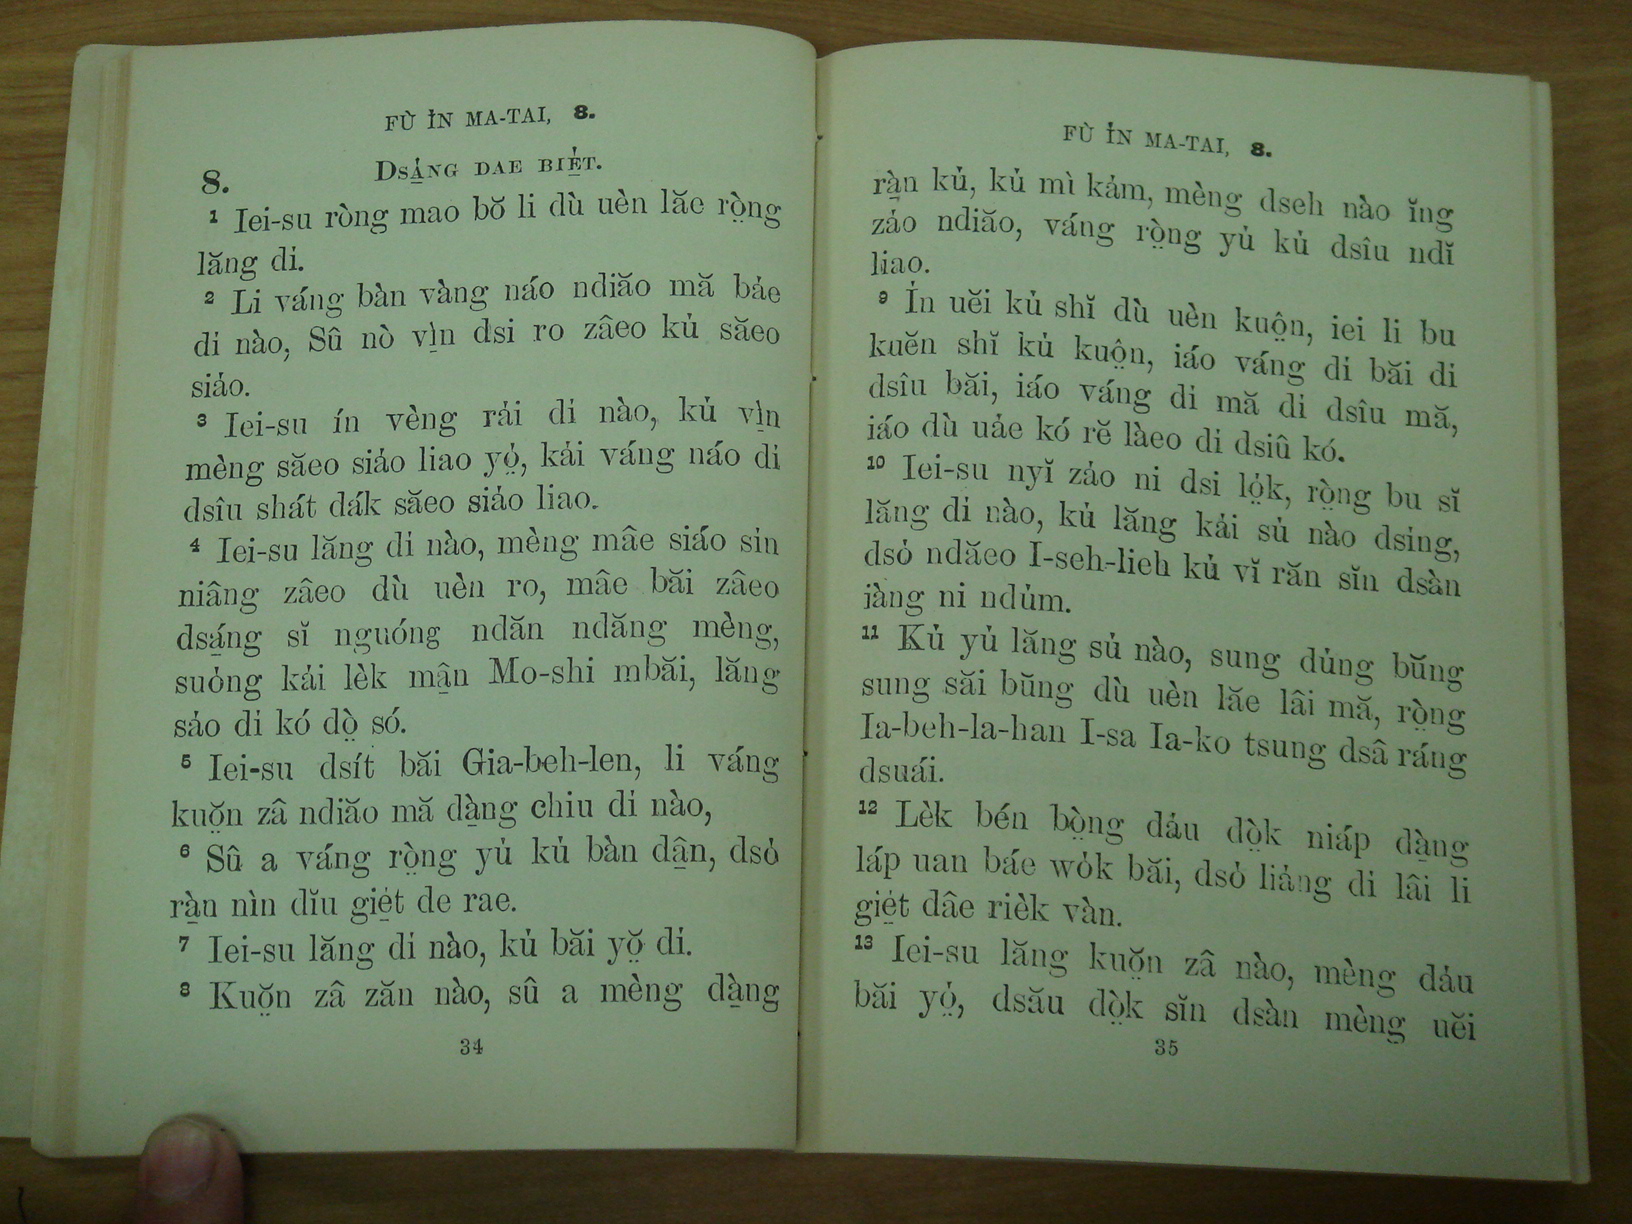 FÙ ỈN MA-TAI, 8.
8.
DSẢ̱NG DAE BIẺ̱T.
1 Iei-su ròng mao bŏ li dù uèn lăe rò̤ng
lăng dỉ.
2 Li váng bàn vàng náo ndiăo mă bảe
dỉ nào, Sû nò vì̱n dsi ro zâeo kủ săeo
siảo.
3 Iei-su ín vèng rải dỉ nào, kủ vì̱n
mèng săeo siảo liao yỏ̤, kải váng náo dỉ
dsîu shát dák săeo siảo liao.
4 Iei-su lăng dỉ nào, mèng mâe siáo sỉn
niâng zâeo dù uèn ro, mâe băi zâeo
dsá̱ng sĭ nguóng ndăn ndăng mèng,
suỏng kải lèk mâ̱n Mo-shi mbăi, lăng
sảo dỉ kó dò̤ só.
5 Iei-su dsít băi Gia-beh-len, li váng
kuŏ̤n zâ ndiăo mă dà̱ng chiu dỉ nào,
6 Sû a váng rò̤ng yủ kủ bàn dâ̱n, dsỏ
rà̱n nìn dĭu giẻ̱t de rae.
7 Iei-su lăng dỉ nào, kủ băi yŏ̤ dỉ.
8 Kuŏ̤n zâ zăn nào, sû a mèng dà̱ng
34
FÙ ỈN MA-TAI, 8.
rà̱n kủ, kủ mì kảm, mèng dseh nào ĭng
zảo ndiăo, váng rò̤ng yủ kủ dsîu ndĭ
liao.
9 Ỉn uĕi kủ shĭ dù uèn kuô̤n, iei li bu
kuĕn shĭ kủ kuô̤n, iáo váng dỉ băi di
dsîu băi, iáo váng dỉ mă dỉ dsîu mă,
iáo dù uảe kó rĕ làeo dỉ dsiû kó.
10 Iei-su nyĭ zảo ni dsi lỏ̤k, rò̤ng bu sĭ
lăng dỉ nào, kủ lăng kải sủ nào dsỉng,
dsỏ ndăeo I-seh-lieh kủ vĭ răn sĭn dsàn
jàng ni ndủm.
11 Kủ yủ lăng sủ nào, sung dủng bŭng
sung săi bŭng dù uèn lăe lâi mă, rò̤ng
Ia-beh-la-han I-sa Ia-ko tsung dsâ ráng
dsuái.
12 Lèk bén bò̤ng dảu dò̤k niáp dà̱ng
láp uan báe wỏk băi, dsỏ liảng di lâi li
giẻ̱t dâe rièk vàn.
13 Iei-su lăng kuŏ̤n zâ nào, mèng dảu
băi yỏ̤, dsău dò̤k sĭn dsàn mèng uĕi
35